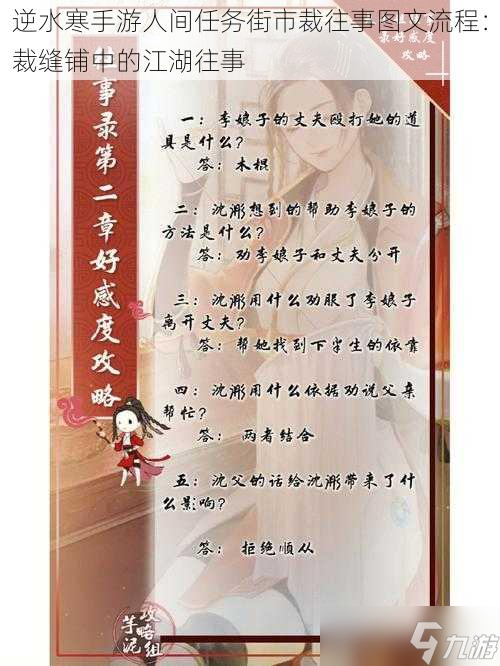 逆水寒手游人间任务街市裁往事图文流程：
裁缝铺中的江湖往事
好感度
攻略
事录第二章好感度攻略
一：李娘子的丈夫殴打她的道
具是什么？
答：木棍
二：沈渐想到的帮助李娘子的
方法是什么？
答：劝李娘子和丈夫分开
三：沈渐用什么劝服了李娘子
离开丈夫？
答：帮她找到下半生的依靠
四：沈渐用什么依据劝说父亲
帮忙？
答：两者结合
五：沈父的话给沈渐带来了什
么影响？
答：拒绝顺从
芋泥
攻略组
九游